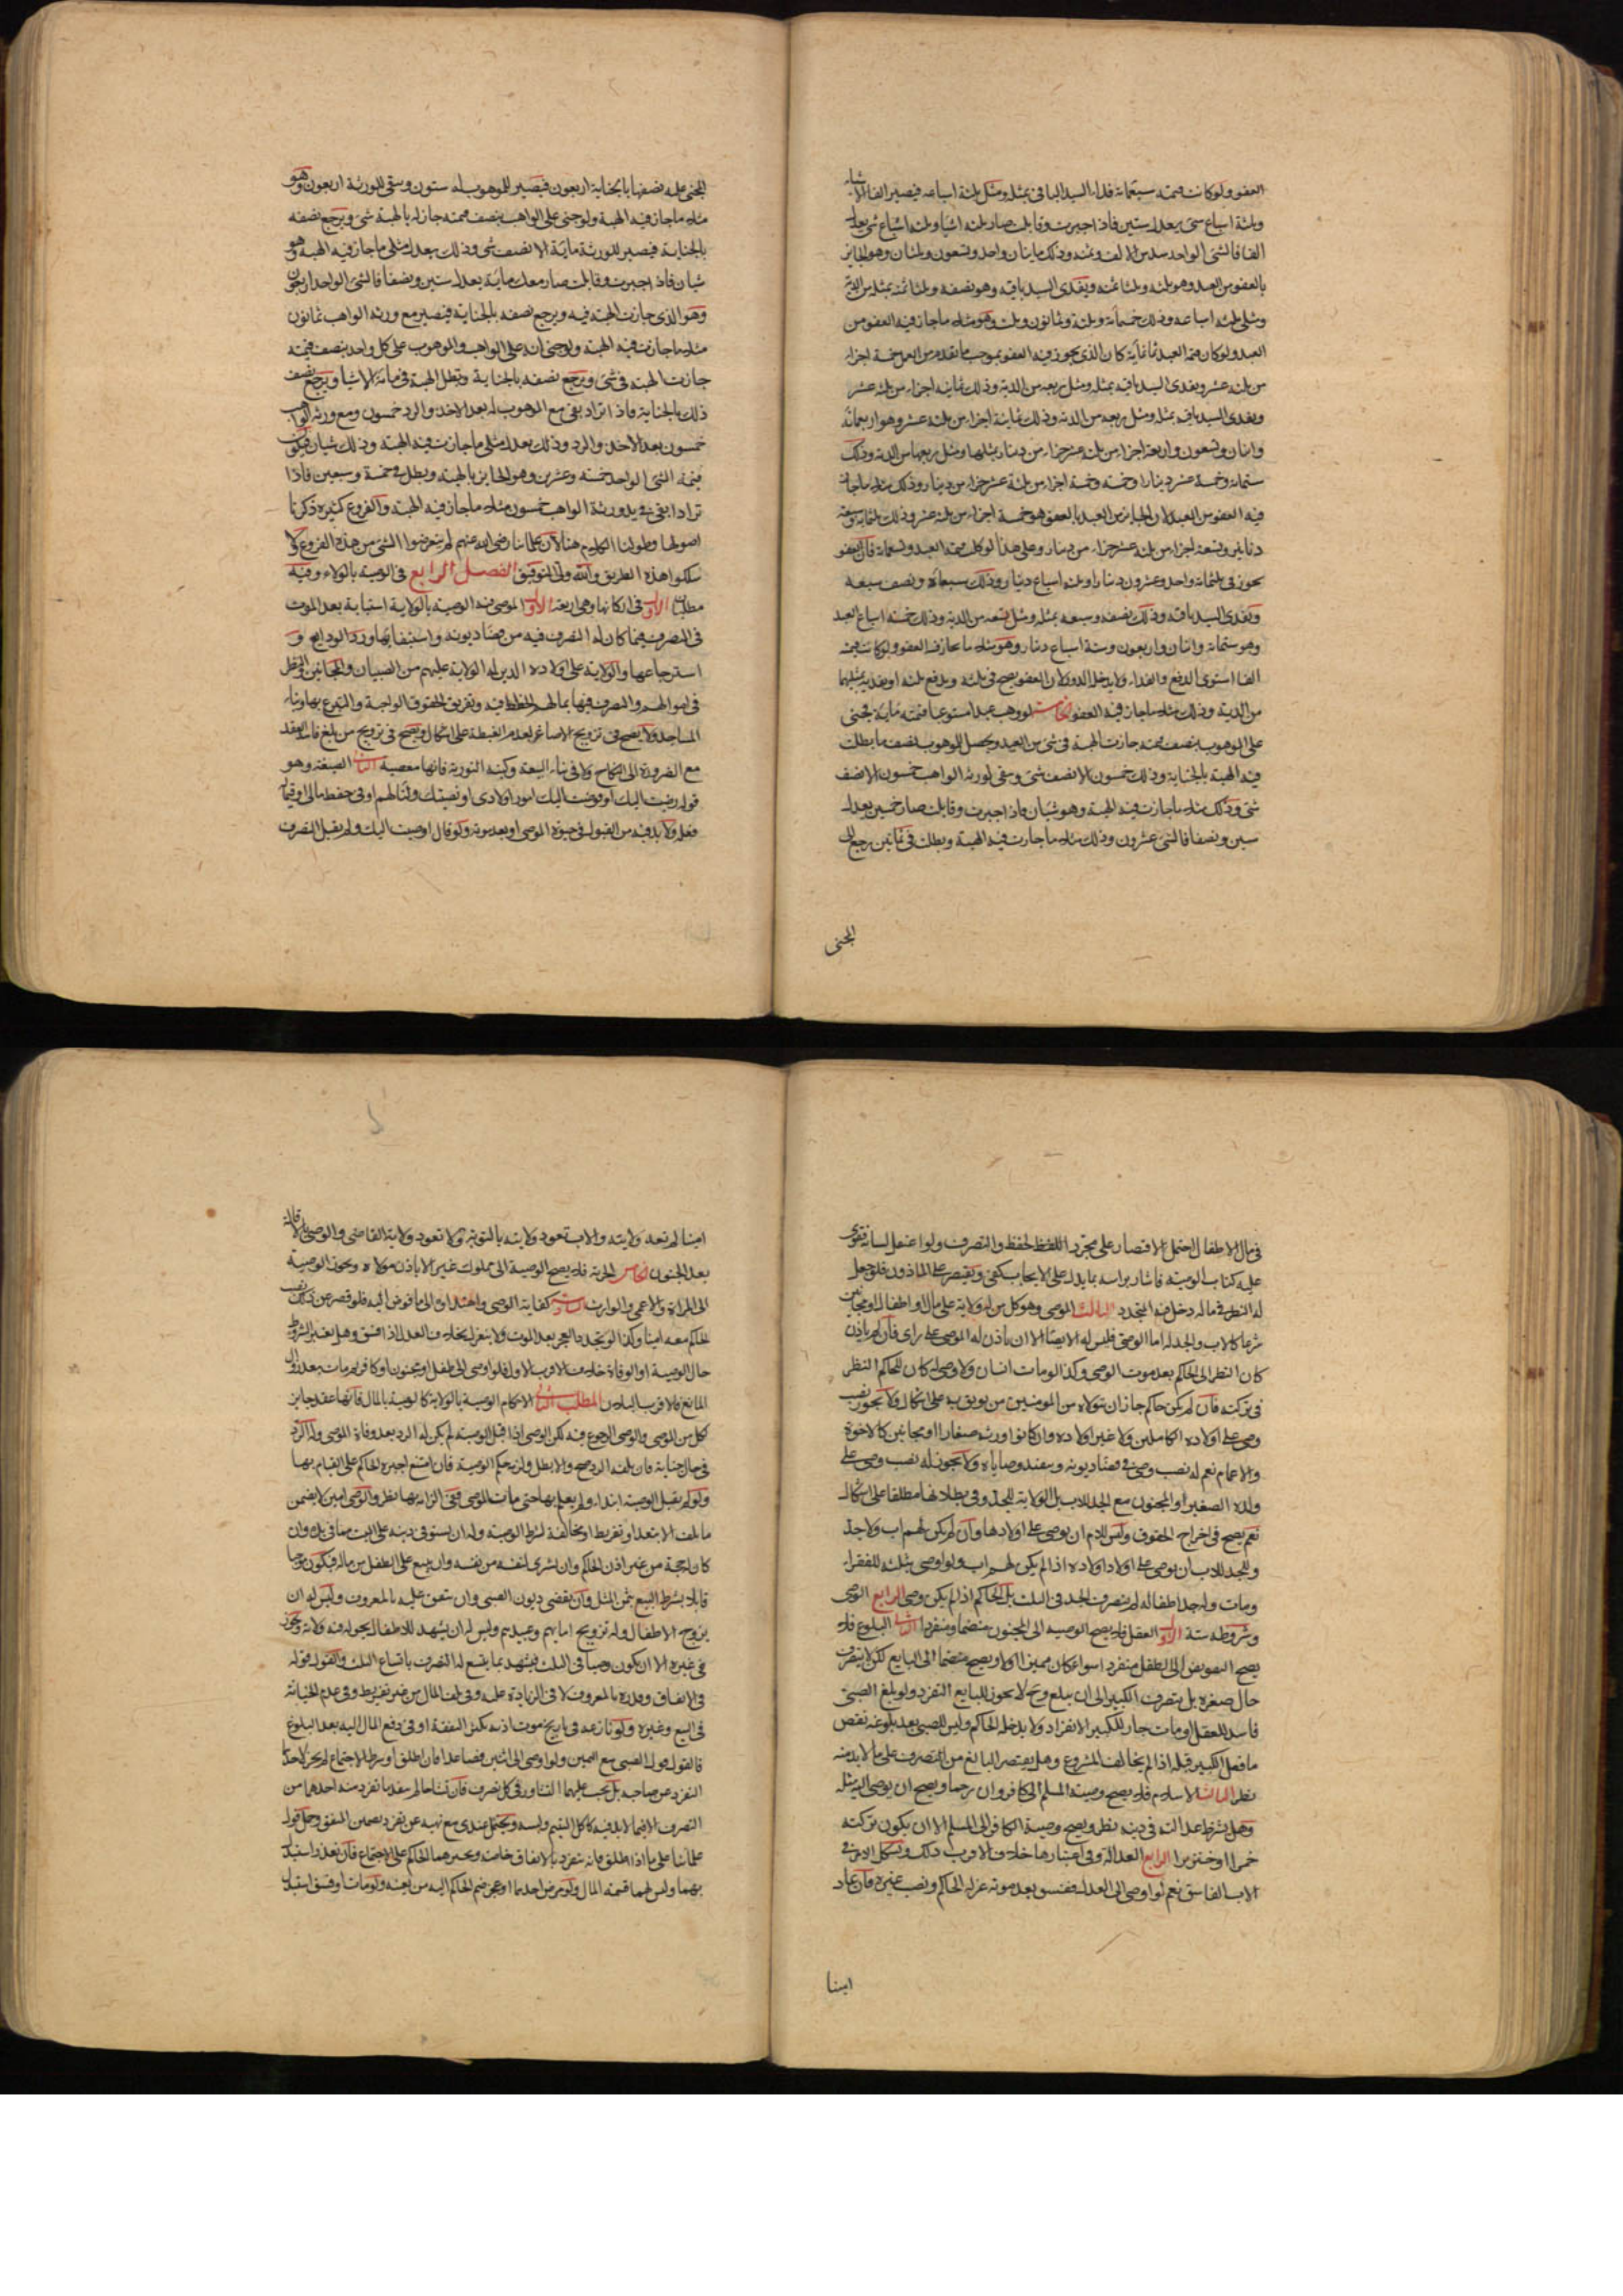 العفو ولو كانت قيمته سبعمائة فداء السيد الباقي بمثله ومثل ثلثة اسباعه فيصير الفا الا شيئا
وثلثة اسباع شئ يعدل ستين فاذا جبرت وقابلت صار ثلثه اشياء وثلثه اسباع شئ يعدل
الفا فالشئ الواحد سدس الالف وثمنه وذلك مايتان واحد وتسعون وثلثان وهو الجايز
بالعفو من العبد وهو ثلثه وثلثا ثمنه ويفدى السيد باقيه وهو نصفه وثلثا ثمنه بمثله من الدية
ومثلى ثلثه اسباعه وذلك خمسمائة وثلثة وثمانون وثلث وهو مثلا ما جاز فيه العفو من
العبد ولو كان قيمة العبد ثمانمائة كان الذى يجوز فيه العفو بموجب ما تقدم من العمل خمسة اجزاء
من ثلثه عشر ويفدى السيد باقيه بمثله ومثل ربعه من الدية وذلك ثمانية اجزاء من ثلثه عشر
ويفدى السيد باقيه بمثله ومثل ربعه من الدية وذلك ثمانية اجزاء من ثلثه عشر وهو اربعمائة
واثنان وتسعون واربعة اجزاء من ثلثه عشر جزاء من دينار بمثلها ومثل ربعها من الدية وذلك
ستمائة وخمسة عشر دينارا وخمسة اجزاء من ثلثة عشر جزاء من دينار وذلك مثلا ما جاز
فيه العفو من العبد لان الجايز من العبد بالعفو هو خمسة اجزاء من ثلثه عشر وذلك ثلثمائة وسبعة
دنانير وتسعة اجزاء من ثلثه عشر جزاء من دينار وعلى هذا لو كانت قيمة العبد وتسعمائة فان العفو
يجوز فى ثلثمائة واحد وعشرون دينارا وثلثه اسباع دينار وذلك سبعاه ونصف سبعه
ويفدى السيد باقيه وذلك نصفه وسبعه بمثله ومثل تسعه من الدية وذلك خمسة اسباع العبد
وهو ستمائة واثنان واربعون وستة اسباع دينار وهو مثلا ما جاز فيه العفو ولو كانت قيمته
الفا استوى الدفع والفداء ولا يدخل الدور لان العفو يصح فى ثلثه ويدفع ثلثه او يفديه بمثليهما
من الدية وذلك مثلا ما جاز فيه العفو الخامس لو وهب عبدا مستوعبا قيمته مائة فجنى
على الموهوب بنصف قيمته جازت الهبة فى شئ من العبد ويحصل للموهوب نصف ما بطلت
فيه الهبة بالجناية وذلك خمسون الا نصف شئ وبقى لورثة الواهب خمسون الا نصف
شئ وذلك مثلا ما جازت فيه الهبة وهو شيئان فاذا جبرت وقابلت صار خمسين يعدل
شيئين ونصفا فالشئ عشرون وذلك مثلا ما جازت فيه الهبة وبطلت فى ثمانين رجع الى
المجنى
المجنى عليه نصفها بالجناية اربعون فيصير للموهوب له ستون وبقى للورثة اربعون وهو
مثلا ما جاز فيه الهبة ولو جنى على الواهب بنصف قيمته جاز له بالهبة شئ ويرجع نصفه
بالجناية فيصير للورثة مائة الا نصف شئ وذلك يعدل مثلى ما جاز فيه الهبة وهو
شيئان فاذا جبرت وقابلت صار معك مائة يعدل شيئين ونصفا فالشئ الواحد اربعون
وهو الذى جازت الهبة فيه ويرجع نصفه بالجناية فيصير مع ورثه الواهب ثمانون
مثلا ما جازت فيه الهبة ولو جنى انه على الواهب والموهوب على كل واحد بنصف قيمته
جازت الهبة فى شئ ويرجع نصفه بالجناية وتبطل الهبة فى مائة الا شيئا ويرجع نصف
ذلك بالجناية فاذا اترادا بقى مع الموهوب له بعد الاخذ والرد خمسون ومع ورثة الواهب
خمسون بعد الاخذ والرد وذلك يعدل مثلى ما جازت فيه الهبة وذلك شيئان فيكون
قيمة الشئ الواحد خمسة وعشرين وهو الجايز بالهبة وبطل فى خمسة وسبعين فاذا
ترادا بقى فى يد ورثة الواهب خمسون مثلا ما جاز فيه الهبة والفروع كثيرة ذكرنا
اصولها وطولنا الكلام هنا لان علمائنا رضى الله عنهم لم يتعرضوا الشئ من هذه الفروع ولا
سلكوا هذه الطريق والله ولى التوفيق الفصل الرابع فى الوصية بالولاء وفيه
مطلبان الاول فى اركانها وهى اربعة الاول الموصى فيه الوصية بالولاية استنابة بعد الموت
فى التصرف فيما كان له التصرف فيه من قضاء ديونه واستيفائها ورد الودايع و
استرجاعها والولاية على اولاده الذين له الولاية عليهم من الصبيان والمجانين والنظر
فى اموالهم والتصرف فيها بما لهم الحظ فيه وتفريق الحقوق الواجبة والتبرع بها وبناء
المساجد ولا يصح فى تزويج الاصاغر لعدم الغبطة على اشكال ويصح فى تزويج من بلغ فاسد العقد
مع الضرورة الى النكاح ولا فى بناء البيعة وكتبه التورية فانها معصية الثانى الصيغة وهو
قوله وصيت اليك او فوضت اليك امور اولادى او نصبتك وليا لهم او فى حفظ مالى او فيما
فعله ولا بد فيه من القبول فى حيوة الموصى او بعد موته ولو قال اوصيت اليك ولم يقبل التصرف
فى مال الاطفال احتمل الاقتصار على مجرد اللفظ لحفظ والتصرف ولو اعتقل لسانه فقرئ
عليه كتاب الوصية فاشار براسه بما يدل على الايجاب كفى ويقتصر على الماذون فلو جعل
له النظر فى ماله دخل فيه المتجدد الثالث الموصى وهو كل من له ولاية على مال او اطفال او مجانين
شرعا كالاب والجد له اما الوصى فليس له الايصاء الا ان ياذن له الموصى على راى فان لم ياذن
كان النظر الى الحاكم بعد موت الوصى وكذا لو مات انسان ولا وصى له كان للحاكم النظر
فى تركته فان لم يكن حاكم جاز ان يتولاه من المومنين من يوثق به على اشكال ولا يجوز نصب
وصى على اولاده الكاملين ولا غير اولاده وان كانوا ورثه صغارا او مجانين كالاخوة
والاعمام نعم له نصب وصى فى قضاء ديونه وينفذ وصاياه ولا يجوز له نصب وصى على
ولده الصغير او المجنون مع الجد للاب بل الولاية للجد وفى بطلانها مطلقا على اشكال
نعم يصح فى اخراج الحقوق وليس للام ان يوصى على اولادها وان لم يكن لهم اب ولا جد
وللجد للاب ان يوصى على اولاد اولاده اذا لم يكن لهم اب ولو اوصى بثلثه للفقراء
ومات وله جد اطفاله لم يتصرف الجد فى الثلث بل الحاكم اذا لم يكن وصى الرابع الوصى
وشروطه ستة الاول العقل فلا يصح الوصيه الى المجنون منضما ومنفردا الثانى البلوغ فلا
يصح التفويض الى الطفل منفردا سواء كان مميزا او لا ويصح منضما الى البايع لكن لا يتصرف
حال صغره بل يتصرف الكبير الى ان يبلغ وح لا يجوز للبايع التفرد ولو بلغ الصبى
فاسد العقل او مات جاز للكبير الانفراد ولا يدخله الحاكم وليس للصبى بعد بلوغه نقض
ما فعل الكبير قبله اذا لم يخالف المشروع وهل يقتصر البالغ من التصرف على ما لا بد منه
نظر الثالث الاسلام فلا يصح وصية المسلم الى كافر وان رحما ويصح ان يوصى اليه مثله
وهل يشترط عدالته فى دينه نظر ويصح وصية الكافر الى المسلم الا ان يكون تركته
خمرا او خنزيرا الرابع العدالة وفى اعتبارها خلاف الاقرب ذلك ويشكل الامر فى
الاب الفاسق نعم لو اوصى الى العدل ففسق بعد موته عزله الحاكم ونصب غيره فان عاد
امينا
امينا لم تعد ولايته والاب تعود ولايته بالتوبة ولا تعود ولاية القاضى والوصى بالافاقة
بعد الجنون الخامس الحرية فلا يصح الوصية الى مملوك غيره الا باذن مولاه ويجوز الوصية
الى المراة والاعمى والوارث السادس كفاية الوصى واهتداؤه الى ما فوض اليه فلو قصر عن ذلك نصب
الحاكم معه امينا وكذا لو تجدد العجز بعد الموت ولا ينعزل بخلاف العدل اذا فسق وهل يعتبر الشروط
حال الوصية او الوفاة خلاف الاقرب الاول فلو اوصى الى طفل او مجنون او كافر ثم مات بعد زوال
المانع فالاقرب البطلان المطلب الثانى الاحكام الوصية بالولاية كالوصية بالمال فانها عقد جايز
لكل من الموصى والوصى الرجوع فيه لكن الوصى اذا قبل الوصية لم يكن له الرد بعد وفاة الموصى وله الرد
فى حال حياته فان بلغه الرد صح والا بطل ولزم حكم الوصية فان امتنع اجبره الحاكم على القيام بها
ولو لم يقبل الوصية ابتداء ولم يعلم بها حتى مات الموصى ففى الزامه بها نظر والوصى امين لا يضمن
ما تلف الا بتعد او تفريط او مخالفة لشرط الوصية وله ان يستوفى دينه على الميت مما فى يده وان
كان له حجة من غير اذن الحاكم وان يشترى لنفسه من نفسه وان يبيع على الطفل من ماله فيكون موجبا
قابلا بشرط البيع بثمن المثل وان يقضى ديون الصبى وان ينفق عليه بالمعروف وليس له ان
يزوج الاطفال وله تزويج امائهم وعبيدهم وليس له ان يشهد للاطفال بحق له فيه ولاية ويجوز
فى غيره الا ان يكون وصيا فى الثلث فيشهد بما يتسع له التصرف باتساع الثلث والقول قوله
فى الانفاق وقدره بالمعروف لا فى الزيادة عليه وفى تلف المال من غير تفريط وفى عدم الخيانة
فى البيع وغيره ولو نازعه فى تاريخ موت ابيه تكثر النفقة او فى دفع المال اليه بعد البلوغ
فالقول قول الصبى مع اليمين ولو اوصى الى اثنين فصاعدا فان اطلق او شرط الاجتماع لم يجز لاحدهما
التفرد عن صاحبه بل يجب عليهما التشاور فى كل تصرف فان تشاحا لم ينفذ ما تفرد منه احدهما من
التصرف الا فيما لا بد فيه كاكل اليتيم ولبسه ويحتمل عندى مع نهيه عن تفرد تضمين المنفق وحمل قول
علمائنا على ما اذا اطلق فانه ينفرد بالانفاق خاصة ويجبرهما الحاكم على الاجتماع فان تعذر استبدل
بهما وليس لهما قسمة المال ولو مرض احدهما او عجز ضم الحاكم اليه من يعينه ولو مات او فسق استبدل